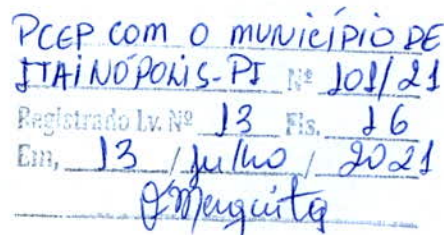 PCEP COM O MUNICÍPIO DE
ITAINÓPOLIS-PI Nº 101/21
Registrado Lv. Nº 13 Fls. 16
Em, 13 / Julho / 2021
JMesquita